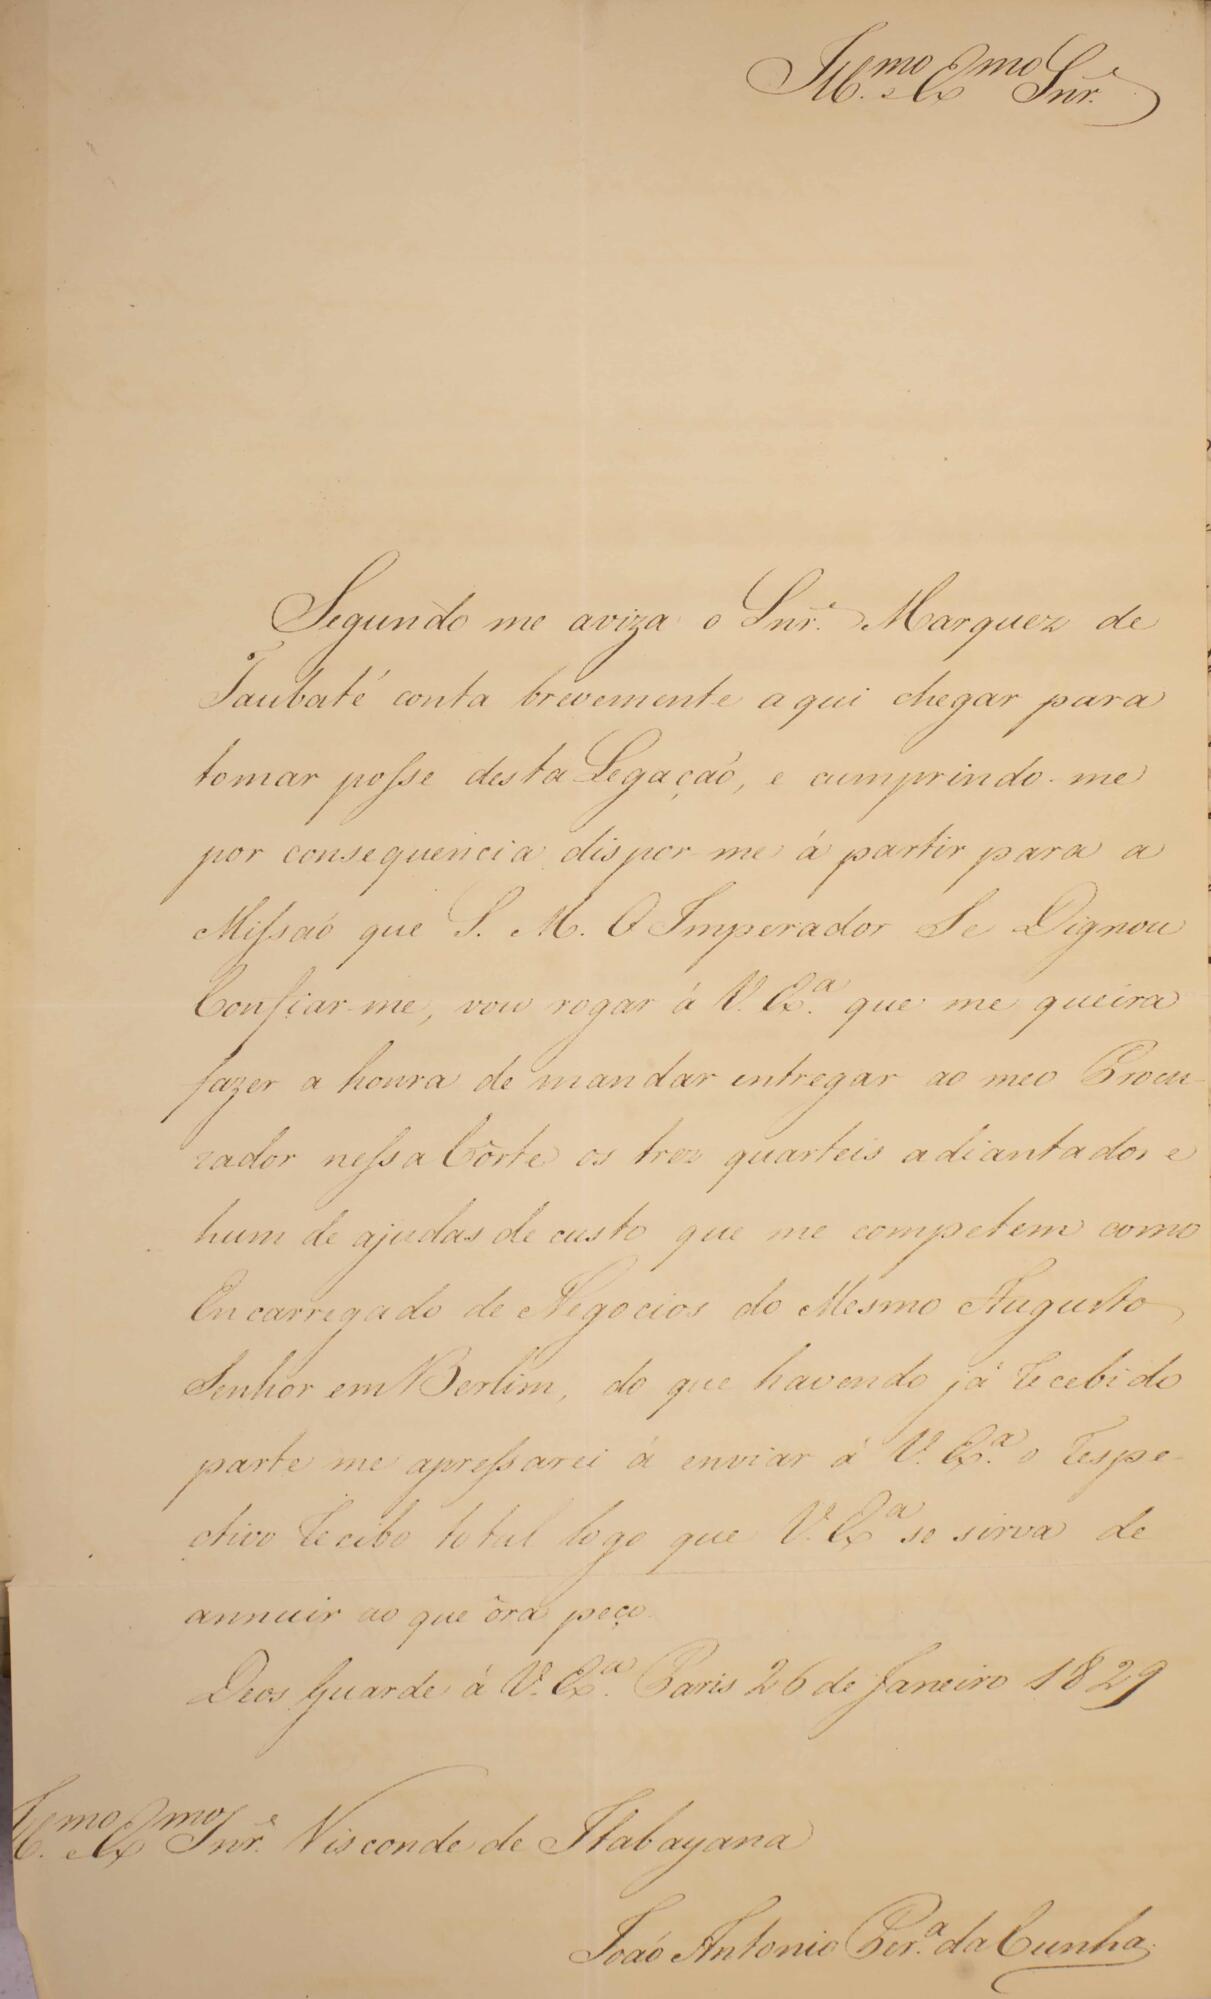 Ill.mo e Ex.mo Snr.e
Segundo me aviza o Snr.e Marquez de
Taubaté conta brevemente aqui chegar para
tomar posse desta Legação, e cumprindo-me
por consequencia dispor-me á partir para a
Missaõ que S. M. O Imperador Se Dignou
Confiar-me, vou rogar á V. Ex.a que me queira
fazer a honra de mandar entregar ao meo Procu-
rador nessa Côrte os trez quarteis adiantados e
hum de ajudas de custo que me competem como
Encarregado de Negocios do Mesmo Augusto
Senhor em Berlim, do que havendo já recebido
parte me apressarei á enviar á V. Ex.a o respe-
ctivo recibo total logo que V. Ex.a se sirva de
annuir ao que óra peço.
Deos Guarde á V. Ex.a Paris 26 de Janeiro 1829
Ill.mo e Ex.mo Snr.e Visconde de Itabayana
João Antonio Per.a da Cunha